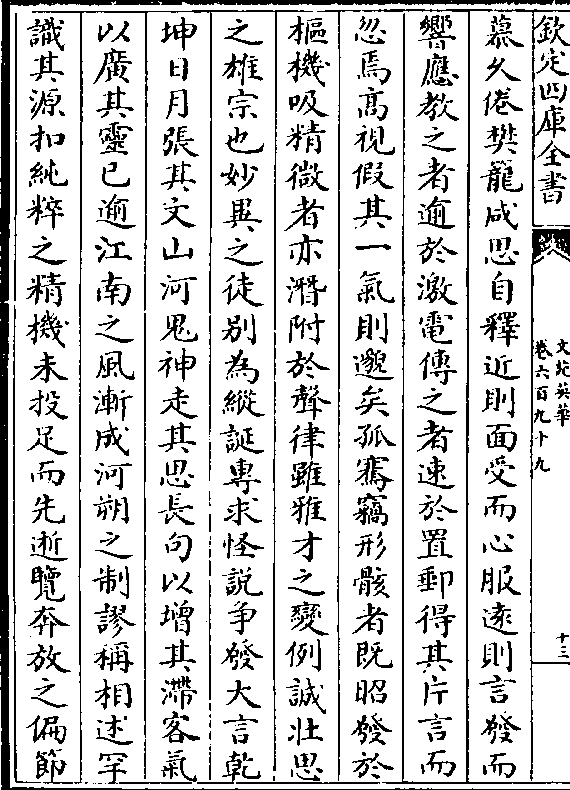 欽定四庫全書
文苑英華
卷六百九十九
十三
慕久倦樊籠咸思自釋近則面受而心服逺則言發而
響應教之者逾於激電傳之者速於置郵得其片言而
忽焉髙視假其一氣則邈矣孤騫竊形骸者既昭發於
樞機吸精微者亦潛附於聲律雖雅才之變例誠壯思
之雄宗也妙異之徒别為縱誕專求怪說争發大言乾
坤日月張其文山河鬼神走其思長句以增其滯客氣
以廣其靈已逾江南之風漸成河朔之制謬稱相述罕
識其源扣純粹之精機未投足而先逝覽奔放之偏節